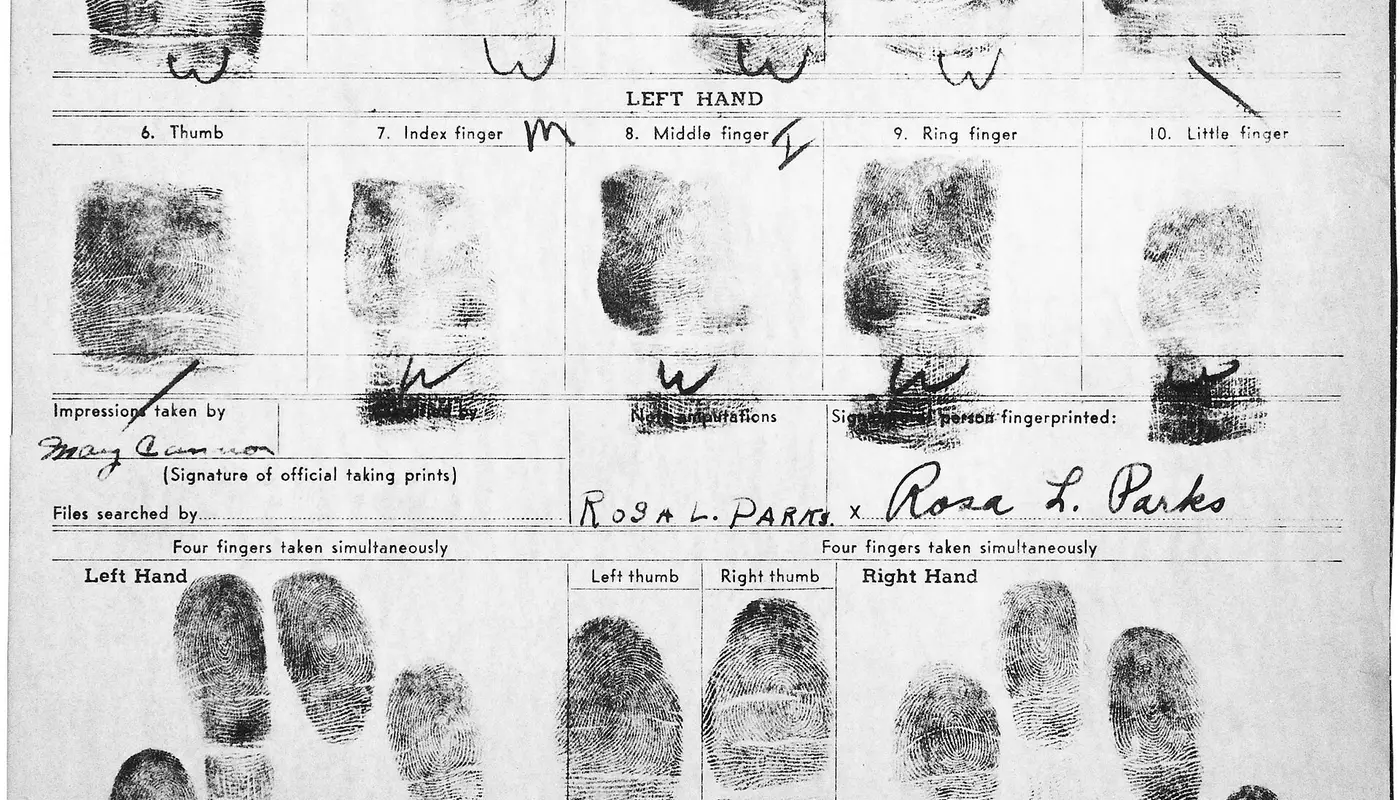 W W W W \
LEFT HAND
6. Thumb 7. Index finger M 8. Middle finger I 9. Ring finger 10. Little finger
/ W W W W
Impressions taken by Note amputations Signature of person fingerprinted:
Mary Cannon
(Signature of official taking prints)
Files searched by ROSA L. PARKS. x Rosa L. Parks
Four fingers taken simultaneously Four fingers taken simultaneously
Left Hand Left thumb Right thumb Right Hand